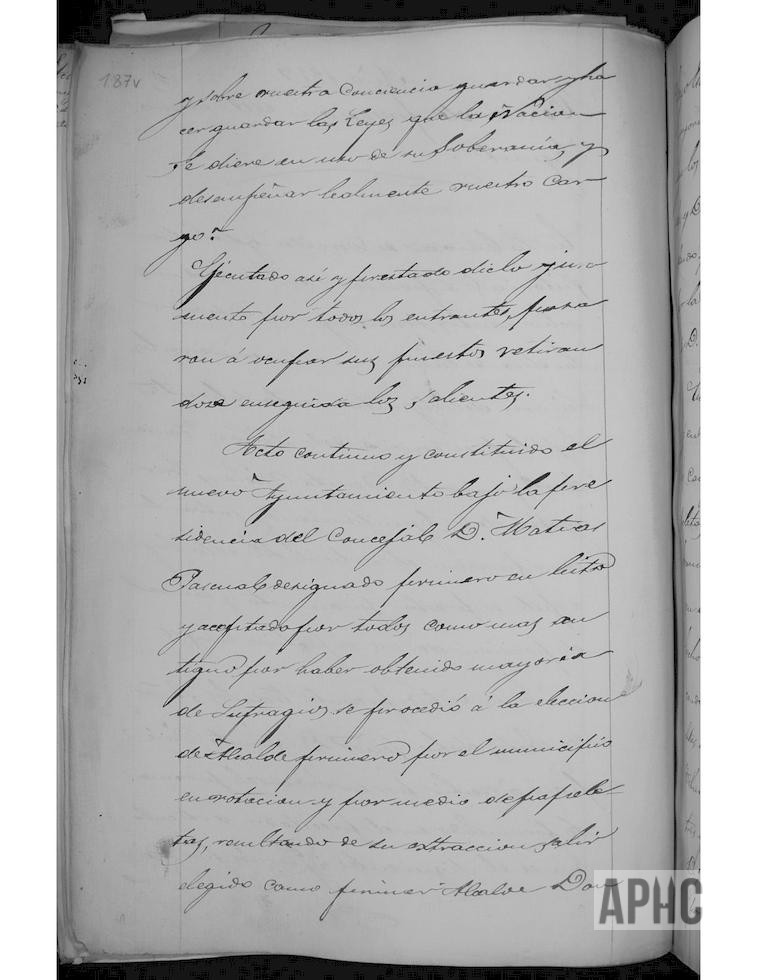 187v
y sobre vuestra conciencia guardar y ha
cer guardar las Leyes que la Nacion
se diere en uso de su Soberanía, y
desempeñar lealmente vuestro Car-
go?
Ejecutado asi y prestado dicho jura
mento por todos los entrantes, pasa
ron á ocupar sus puestos retiran
dose enseguida los salientes.
Acto continuo y constituido el
nuevo Ayuntamiento bajo la pre
sidencia del Concejal D. Matias
Pascual designado primero en lista
y aceptado por todos como mas an
tiguo por haber obtenido mayoria
de Sufragios se procedió á la eleccion
de Alcalde primero por el municipio
en votacion y por medio de papele
tas, resultando de su extraccion salir
elegido como primer Alcalde Don
APHC